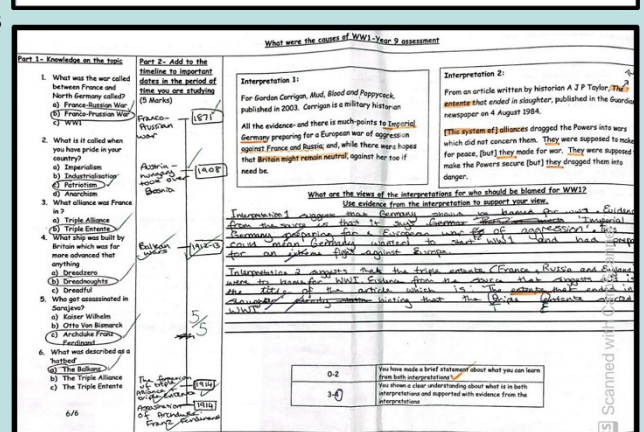 What were the causes of WW1-Year 9 assessment
Part 1- Knowledge on the topic
1. What was the war called
between France and
North Germany called?
a) France-Russian War
b) Franco-Prussian War
c) WW1
2. What is it called when
you have pride in your
country?
a) Imperialism
b) Industrialisation
c) Patriotism
d) Anarchism
3. What alliance was France
in ?
a) Triple Alliance
b) Triple Entente
4. What ship was built by
Britain which was far
more advanced that
anything
a) Dreadzero
b) Dreadnoughts
c) Dreadful
5. Who got assassinated in
Sarajevo?
a) Kaiser Wilhelm
b) Otto Von Bismarck
c) Archduke Franz
Ferdinand
6. What was described as a
'hatbed'
a) The Balkans
b) The Triple Alliance
c) The Triple Entente
6/6
Part 2- Add to the
timeline to important
dates in the period of
time you are studying
(5 Marks)
Franco-
Prussian
war
1871
Austria-
hungary
took over
Bosnia
1908
Balkan
wars
1912-13
5/5
The formation
of triple
Alliance &
triple entente
1914
Assassination
of Archduke
Franz Ferdinand
1914
Interpretation 1:
For Gordon Corrigan, Mud, Blood and Poppycock,
published in 2003. Corrigan is a military historian
All the evidence- and there is much-points to Imperial
Germany preparing for a European war of aggression
against France and Russia; and, while there were hopes
that Britain might remain neutral, against her too if
need be.
Interpretation 2:
From an article written by historian A J P Taylor, The
entente that ended in slaughter, published in the Guardian
newspaper on 4 August 1984.
[The system of] alliances dragged the Powers into wars
which did not concern them. They were supposed to make
for peace, [but] they made for war. They were supposed
make the Powers secure [but] they dragged them into
danger.
What are the views of the interpretations for who should be blamed for WW1?
Use evidence from the interpretation to support your view.
Interpretation 1 suggests that Germany should be blamed for ww1. Evidence
from the source is that it says German 'Imperial
Germany preparing for a European war of aggression', this
could mean Germany wanted to start WW1 and had
for an fight against Europe.
Interpretation 2 suggests that the triple entente (France, Russia and England)
were to blame for WW1. Evidence from the source that suggests this is
the title of the article which is: 'The entente that ended in
slaughter' hinting that the Triple Entente
WW1
0-2
You have made a brief statement about what you can learn
from both interpretations
3-4
You shown a clear understanding about what is in both
interpretations and supported with evidence from the
interpretations
Scanned with